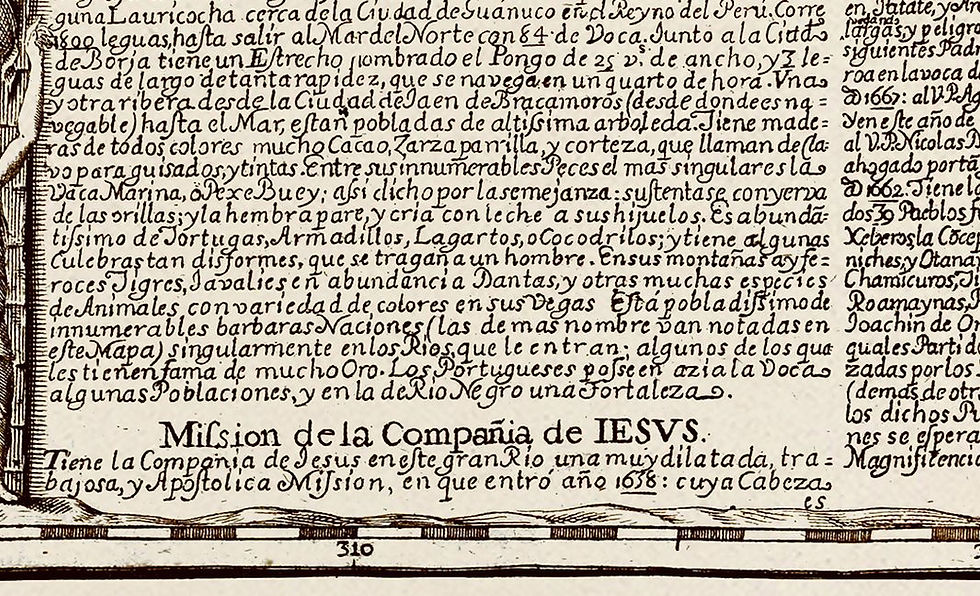 guna Lauricocha cerca de la Ciudad de Guánuco en el Reyno del Perú. Corre
1800 leguas, hasta salir al Mar del Norte con 84 de Boca. Junto a la Ciud
de Borja tiene un Estrecho nombrado el Pongo de 25 vs. de ancho, y 3 le=
guas de largo de tanta rapidez, que se navega en un quarto de hora. Vna
y otra ribera desde la Ciudad de Iaen de Bracamoros (desde donde es na=
vegable) hasta el Mar, están pobladas de altissima arboleda. Tiene made=
ras de todos colores mucho Cacao, Zarzaparrilla, y corteza, que llaman de cla
vo para guisados, y tintas. Entre sus innumerables Peces el mas singular es la
Vaca Marina, ò Pexe Buey; assi dicho por la semejanza: sustentase con yerva
de las orillas; y la hembra pare, y cria con leche a sus hijuelos. Es abundā=
tissimo de Tortugas, Armadillos, Lagartos, o Cocodrilos; y tiene algunas
Culebras tan disformes, que se tragan a un hombre. En sus montañas ay fe=
roces Tigres, Iavalies en abundancia Dantas, y otras muchas especies
de Animales con variedad de colores en sus Vegas Està pobladissimo de
innumerables barbaras Naciones (las de mas nombre van notadas en
este Mapa) singularmente en los Rios, que le entran; algunos de los qua
les tienen fama de mucho Oro. Los Portugueses posseen azia la Boca
algunas Poblaciones, y en la de Rio Negro una Fortaleza.
Mission de la Compañia de IESVS.
Tiene la Compañia de Jesus en este gran Rio una muy dilatada, tra=
bajosa, y Apostolica Mission, en que entró año 1638: cuya Cabeza
es
en, Patate, y
largas, y peligro
siguientes Pad
roa en la voca d
1667: al V.P. Ag
Y en este año de
al V.P. Nicolas
ahogado por
1662. Tiene
dos 39 Pueblos
Xeberos, la Cōcep
niches, y Otana
Chamicuros,
Roamaynas,
Ioachin de O
quales Partido
zadas por los
(demás de otr
los dichos
nes se espera
Magnificencia
310